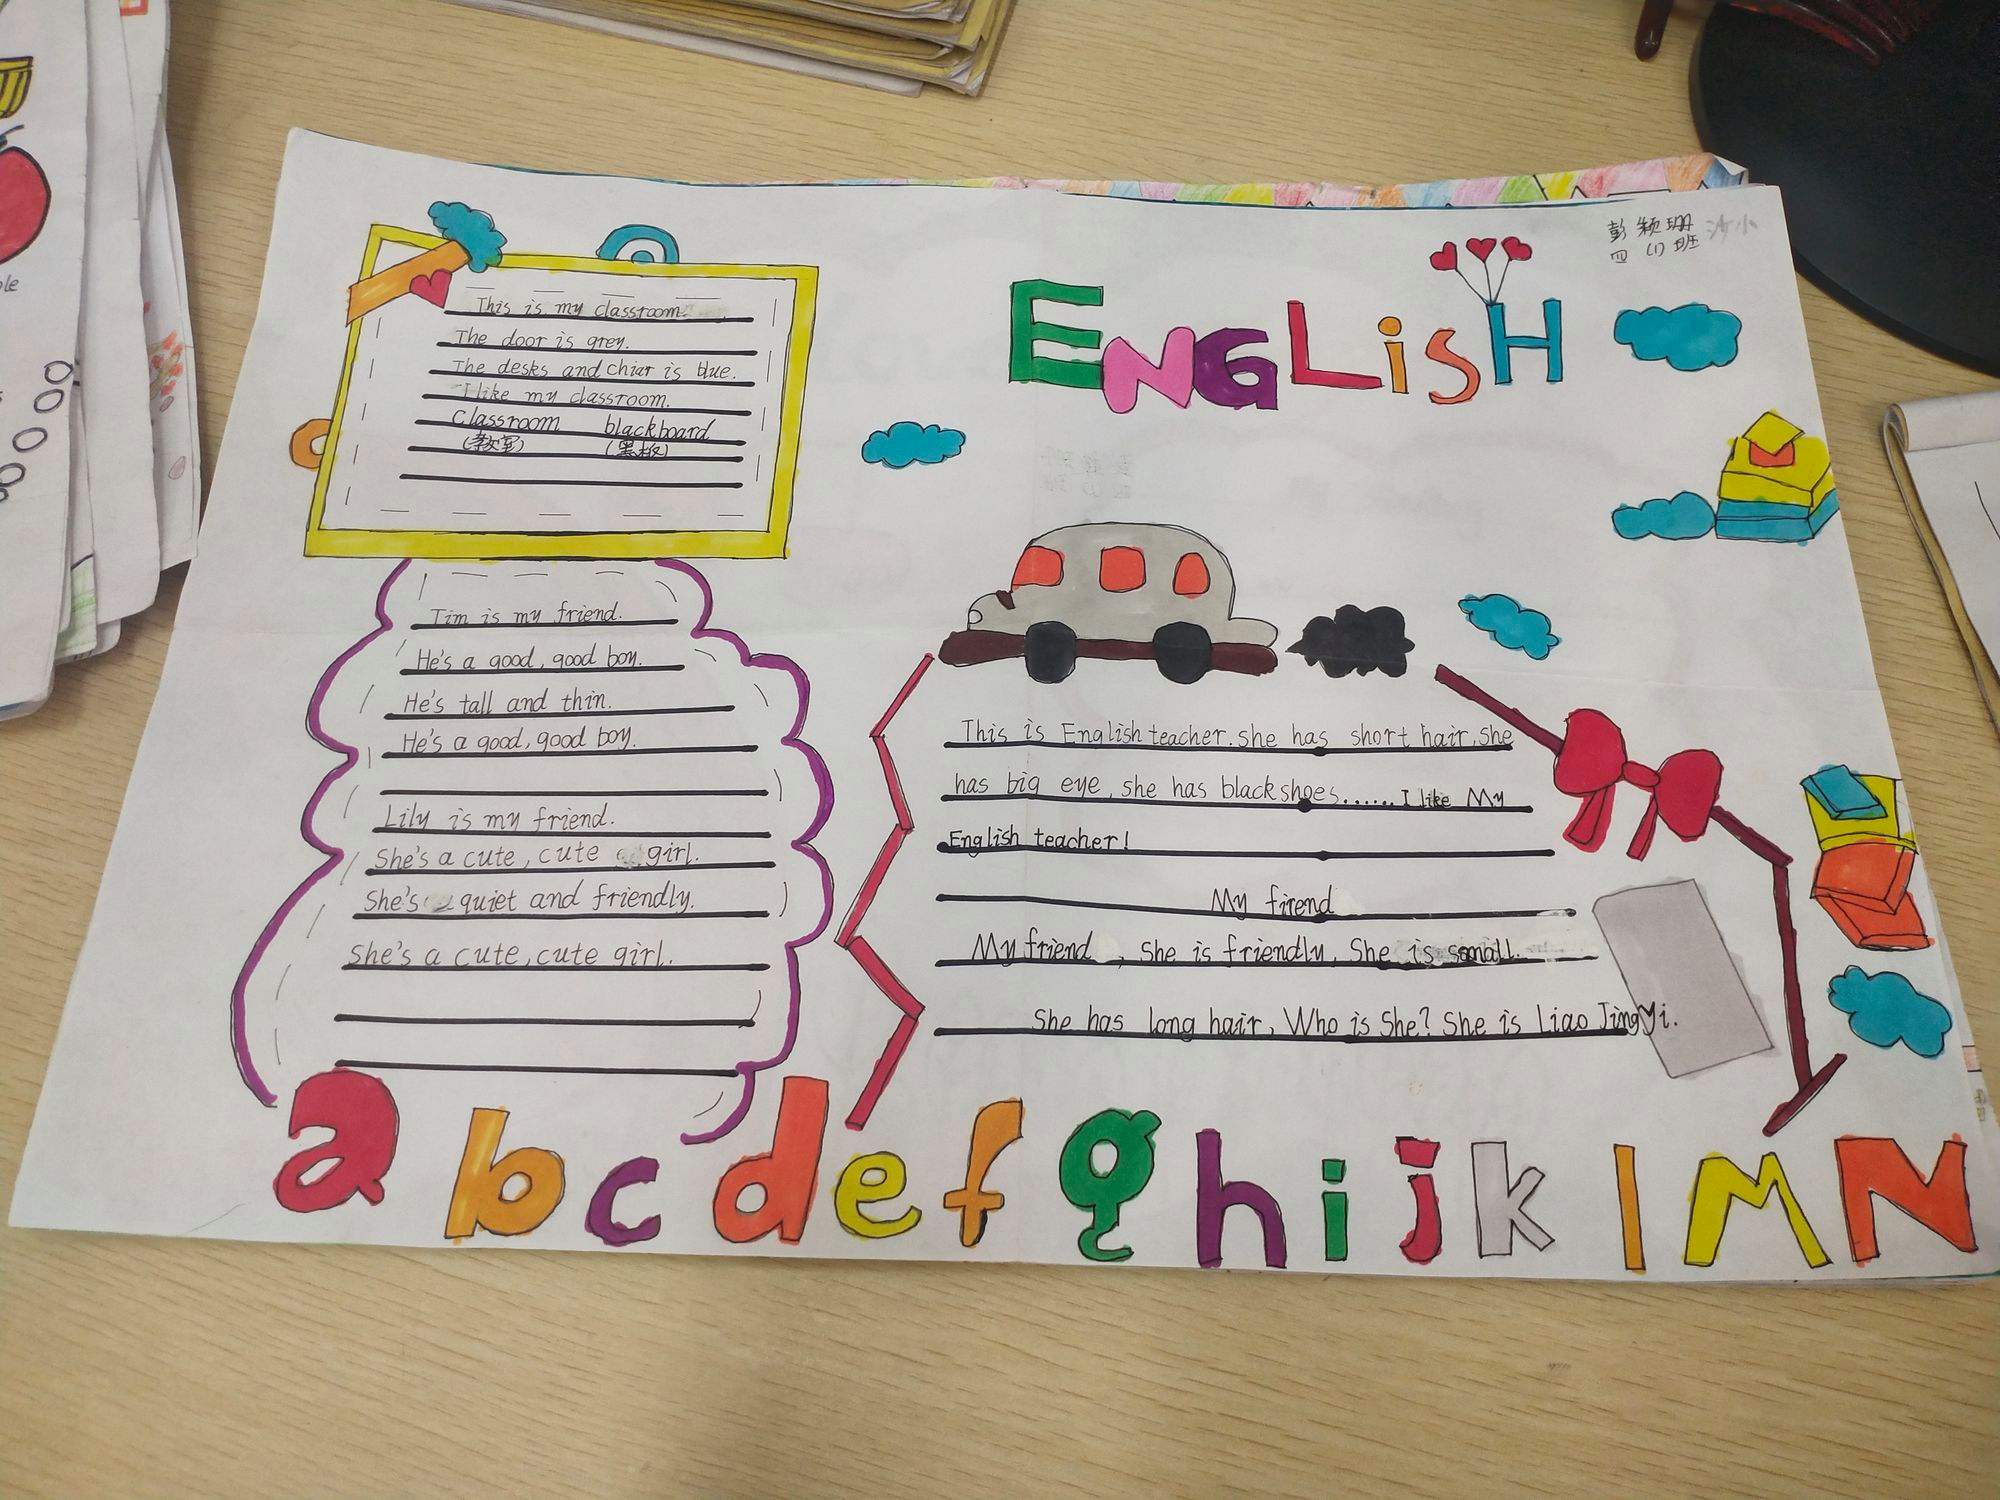 彭颖珊 沙小
四(1)班
ENGLisH
This is my classroom.
The door is grey.
The desks and chiar is blue.
I like my classroom.
classroom blackboard
(教室) (黑板)
Tim is my friend.
He's a good, good boy.
He's tall and thin.
He's a good, good boy.
Lily is my friend.
She's a cute, cute girl.
She's quiet and friendly.
She's a cute, cute girl.
This is English teacher. she has short hair. she
has big eye, she has black shoes...... I like My
English teacher!
My firend
My friend, She is friendly. She is small.
She has long hair, Who is She? She is Liao Jingyi.
a b c d e f g h i j k l M N